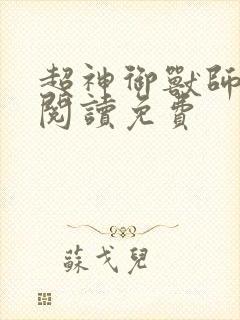 超神御獸師
閱讀免費
蘇戈兒